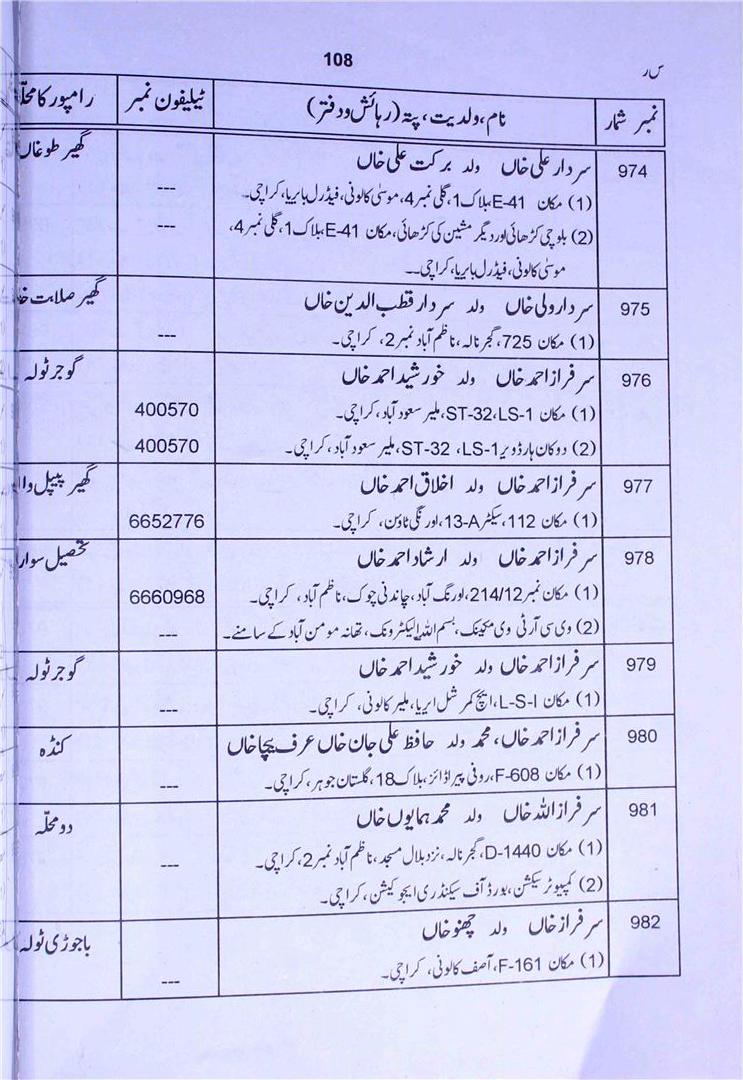 108
س ر
نمبر شمار	نام، ولدیت، پتہ (رہائش و دفتر)	ٹیلیفون نمبر	رامپور کا محلّہ
974	سردار علی خاں ولد برکت علی خاں	گھیر طوغاں
(1) مکان E-41، بلاک 1، گلی نمبر 4، موسیٰ کالونی، فیڈرل بی ایریا، کراچی۔	---
(2) بلوچی کڑھائی اور دیگر مشین کی کڑھائی، مکان E-41، بلاک 1، گلی نمبر 4،	---
موسیٰ کالونی، فیڈرل بی ایریا، کراچی۔۔
975	سردار ولی خاں ولد سردار قطب الدین خاں	گھیر صلابت خا
(1) مکان 725، گجر نالہ، ناظم آباد نمبر 2، کراچی۔	---
976	سرفراز احمد خاں ولد خورشید احمد خاں	گوجر ٹولہ
(1) مکان ST-32، LS-1، ملیر سعود آباد، کراچی۔	400570
(2) دوکان ہارڈویر LS-1، ST-32، ملیر سعود آباد، کراچی۔	400570
977	سرفراز احمد خاں ولد اخلاق احمد خاں	گھیر پیپل وا
(1) مکان 112، سیکٹر 13-A، اورنگی ٹاؤن، کراچی۔	6652776
978	سرفراز احمد خاں ولد ارشاد احمد خاں	تحصیل سوار
(1) مکان نمبر 214/12، اورنگ آباد، چاندنی چوک، ناظم آباد، کراچی۔	6660968
(2) وی سی آر ٹی وی مکینک، بسم اللہ الیکٹرونک، تھانہ مومن آباد کے سامنے۔	---
979	سرفراز احمد خاں ولد خورشید احمد خاں	گوجر ٹولہ
(1) مکان L-S-I، ایچ کمرشل ایریا، ملیر کالونی، کراچی۔	---
980	سرفراز احمد خاں، محمد ولد حافظ علی جان خاں عرف چچا خاں	کنڈہ
(1) مکان F-608، روفی پیراڈائز، بلاک 18، گلستان جوہر، کراچی۔	---
981	سرفراز اللہ خاں ولد محمد ہمایوں خاں	دو محلّہ
(1) مکان D-1440، گجر نالہ، نزد بلال مسجد، ناظم آباد نمبر 2، کراچی۔	---
(2) کمپیوٹر سیکشن، بورڈ آف سیکنڈری ایجوکیشن، کراچی۔
982	سرفراز خاں ولد چھنو خاں	باجوڑی ٹولہ
(1) مکان F-161، آصف کالونی، کراچی۔	---